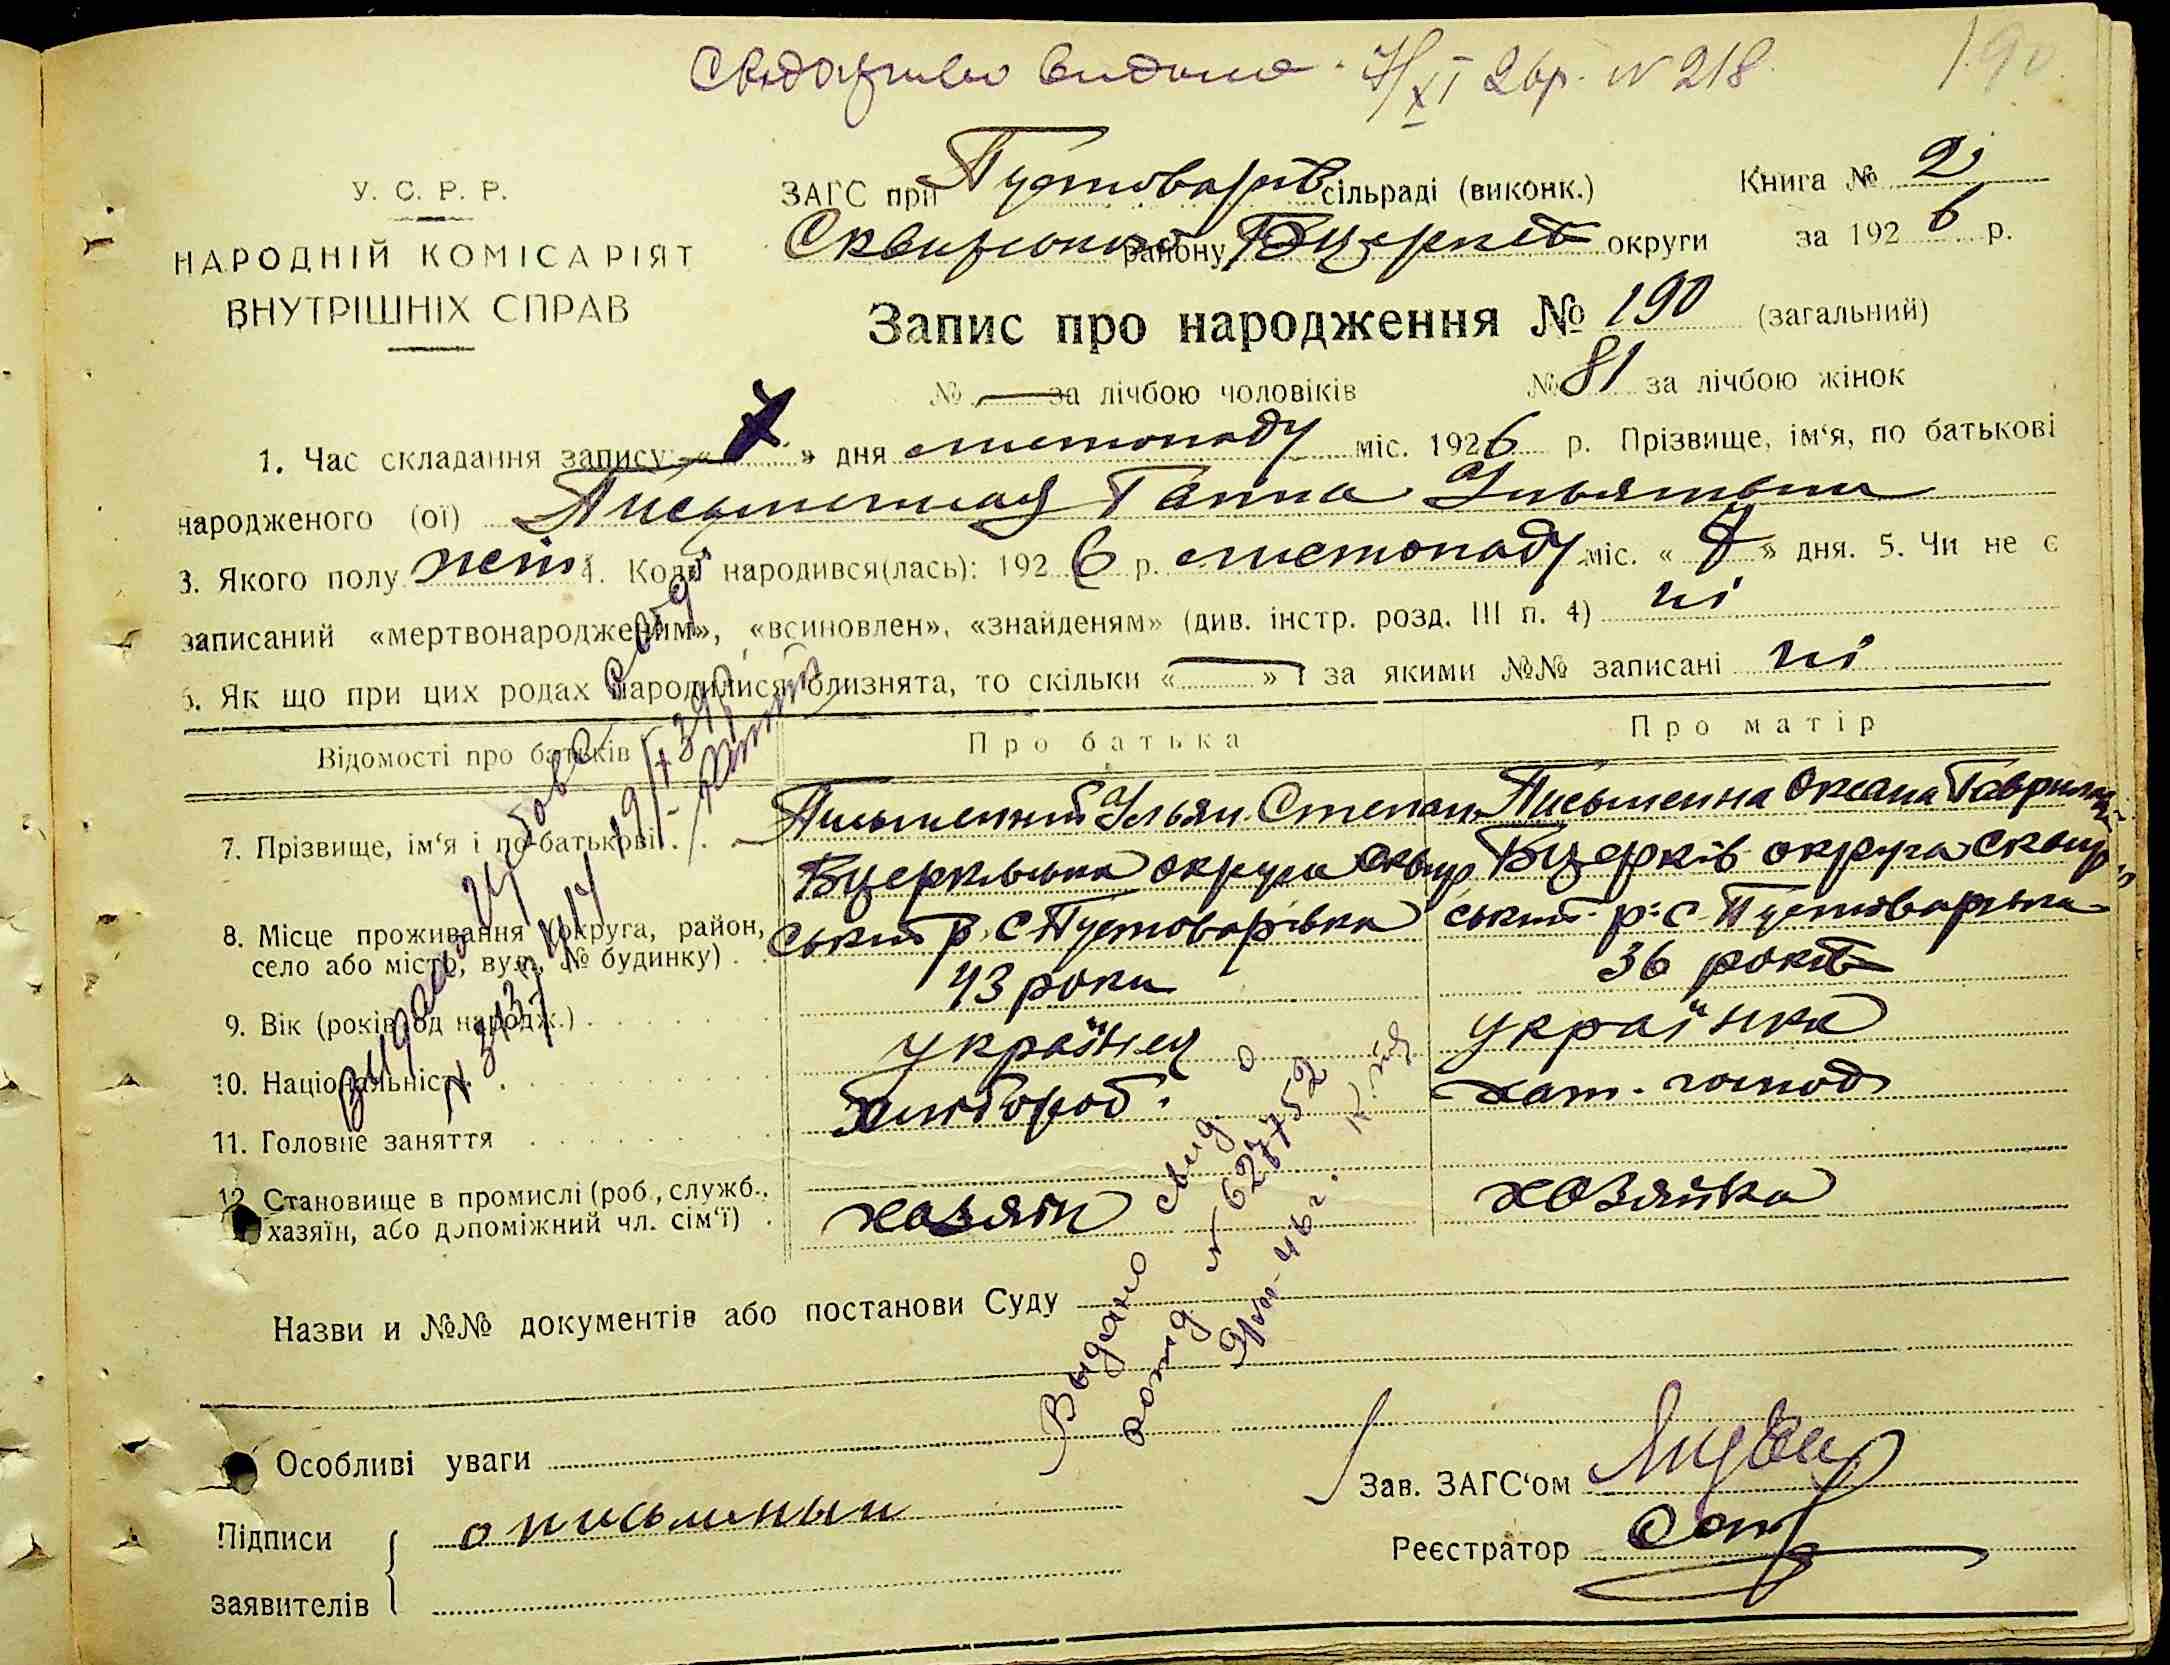 Свідоцтво видане 7/XI 26р. N 218.
190
У. С. Р. Р.
НАРОДНІЙ КОМІСАРІЯТ
ВНУТРІШНІХ СПРАВ
ЗАГС при Пустоварів сільраді (виконк.)
Книга № 2
Сквирського району Бцерків округи
за 1926 р.
Запис про народження № 190 (загальний)
№ — за лічбою чоловіків № 81 за лічбою жінок
1. Час складання запису: « 7 » дня листопаду міс. 1926 р. Прізвище, ім‘я, по батькові
народженого (ої) Письменная Ганна Ульяновна
3. Якого полу жін 4. Коли народився(лась): 1926 р. листопаду міс. « 7 » дня. 5. Чи не є
записаний «мертвонародженим», «всиновлен», «знайденям» (див. інстр. розд. III п. 4) ні
6. Як що при цих родах народилися близнята, то скільки « — » і за якими №№ записані ні
Відомості про батьків
Про батька
Про матір
7. Прізвище, ім‘я і по-батькові . .
Письменний Ульян Степан
Письменна Оксана Гаврил
8. Місце проживання (округа, район,
село або місто, вул., № будинку) . .
Бцерківська округа Сквир
ський р. с Пустоварівка
Бцерків округа Сквир
ський р. с Пустоварівка
9. Вік (років од народж.)
43 роки
36 років
10. Національність
українец
українка
11. Головне заняття
хлібороб.
хат. господ
12. Становище в промислі (роб., служб.,
хазяїн, або допоміжний чл. сім‘ї) .
хазяін
хозяйка
Выдано свид. о
рожд N 627752
46 г.
Назви и №№ документів або постанови Суду
Особливі уваги
Підписи
заявителів
Письменый
Зав. ЗАГС‘ом
Реєстратор